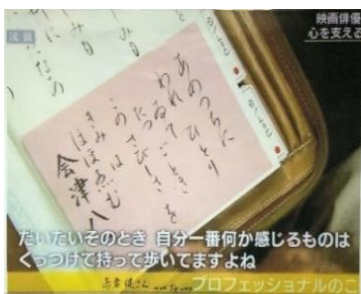 映画俳優
心を支える
流儀
あめつちに
われひとりゐて
たつごとき
このさびしさを
きみはほほゑむ
会津八
だいたいそのとき 自分一番何か感じるものは
くっつけて持って歩いてますよね
高倉健さん
プロフェッショナルのこ